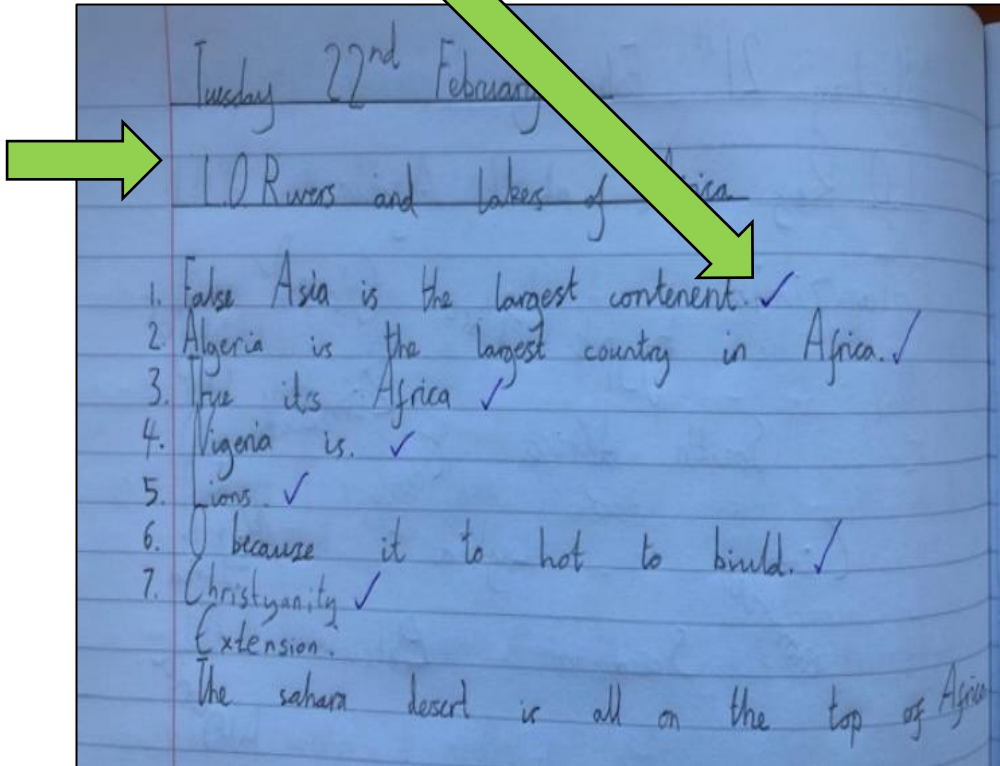 Tuesday 22nd February
L.O Rivers and lakes of Africa
1. False Asia is the largest contenent. ✓
2. Algeria is the largest country in Africa. ✓
3. True it's Africa ✓
4. Nigeria is. ✓
5. Lions. ✓
6. 0 because it to hot to biuld. ✓
7. Christyanity ✓
Extension.
The sahara desert is all on the top of Africa